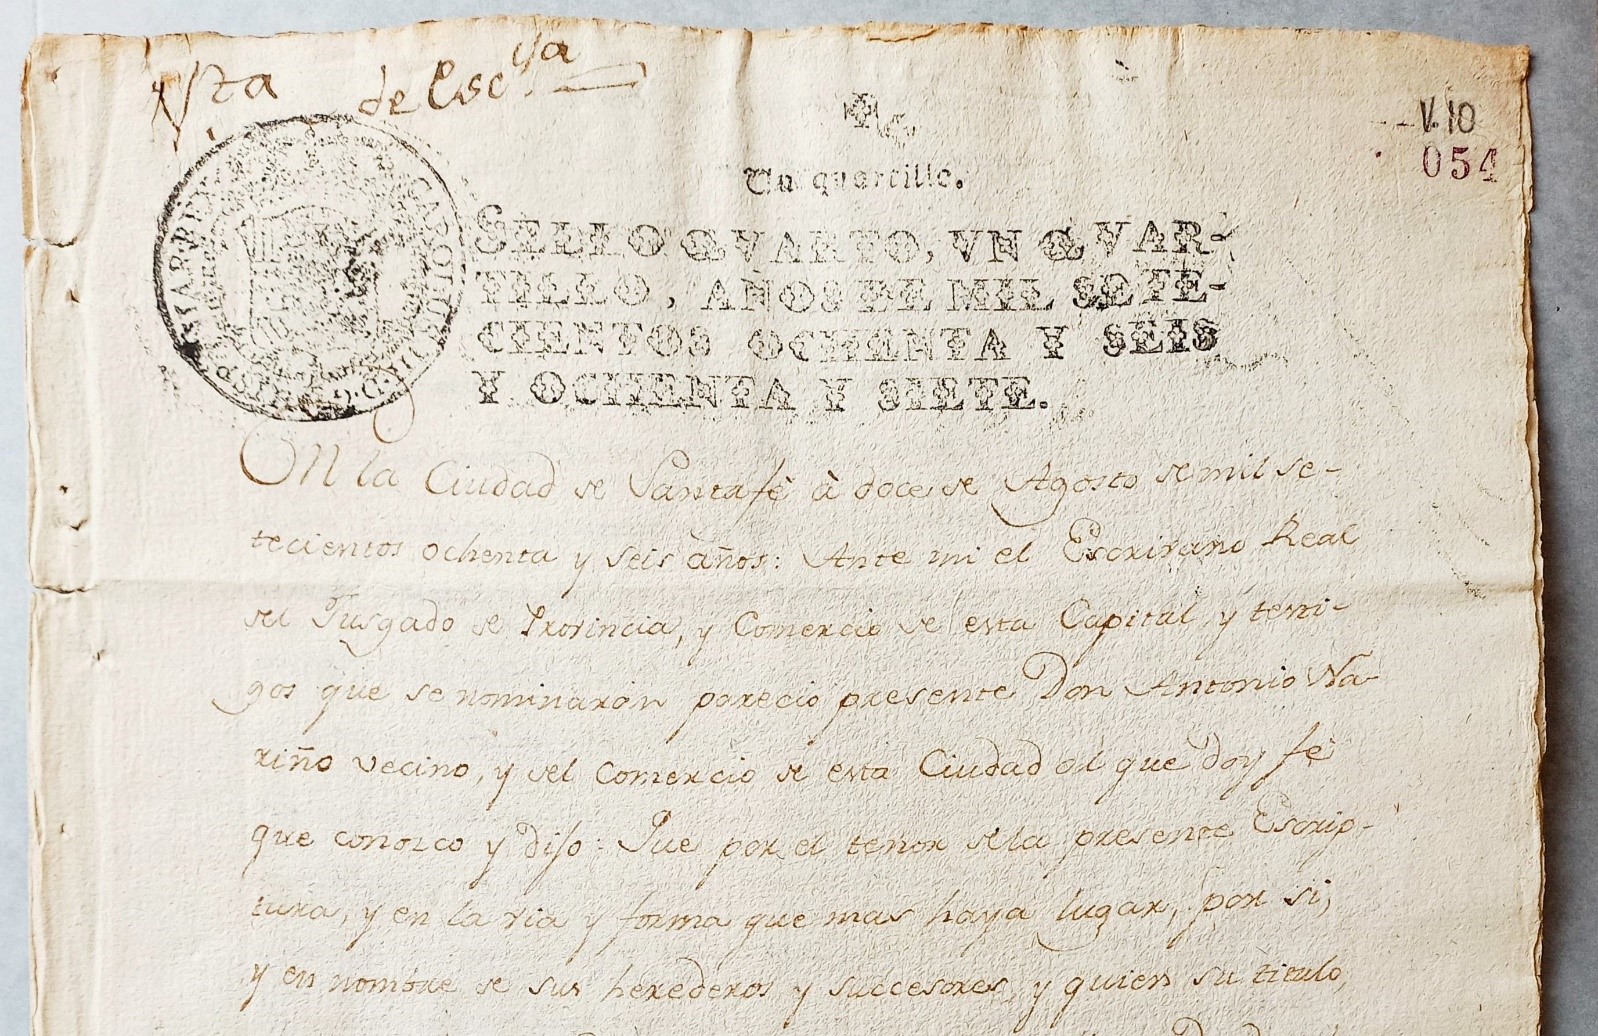 Vsta de Escya
V. 10
054
Un quartillo.
SELLO QVARTO, VN QVAR-
TILLO, AÑOS DE MIL SETE-
CIENTOS OCHENTA Y SEIS
Y OCHENTA Y SIETE.
CAROLUS III D. G.
En la Ciudad de Santafé à doce de Agosto de mil se-
tecientos ochenta y seis años: Ante mi el Escrivano Real
del Jusgado de Provincia, y Comercio de esta Capital, y testi-
gos que se nominarán parecio presente Don Antonio Na-
riño vecino, y del Comercio de esta Ciudad àl que doy fé
que conozco y dijo: Que por el tenor dela presente Escrip-
tura, y en la via y forma que mas haya lugar, por si,
y en nombre de sus herederos y successores, y quien su titulo,